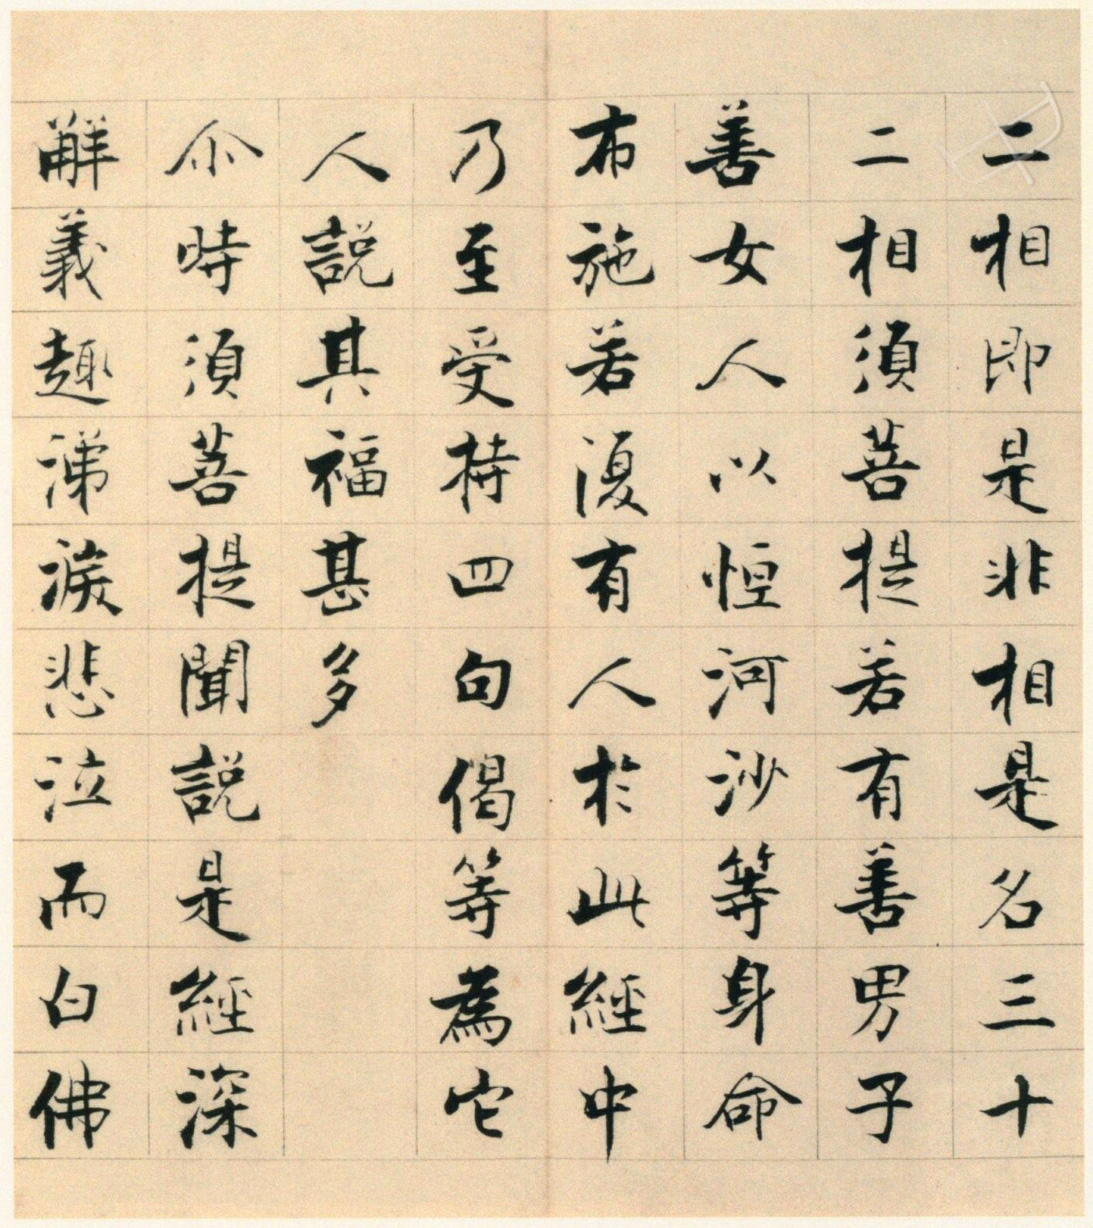 二相即是非相是名三十
二相須菩提若有善男子
善女人以恒河沙等身命
布施若復有人於此經中
乃至受持四句偈等為它
人說其福甚多
尒時須菩提聞說是經深
解義趣涕淚悲泣而白佛